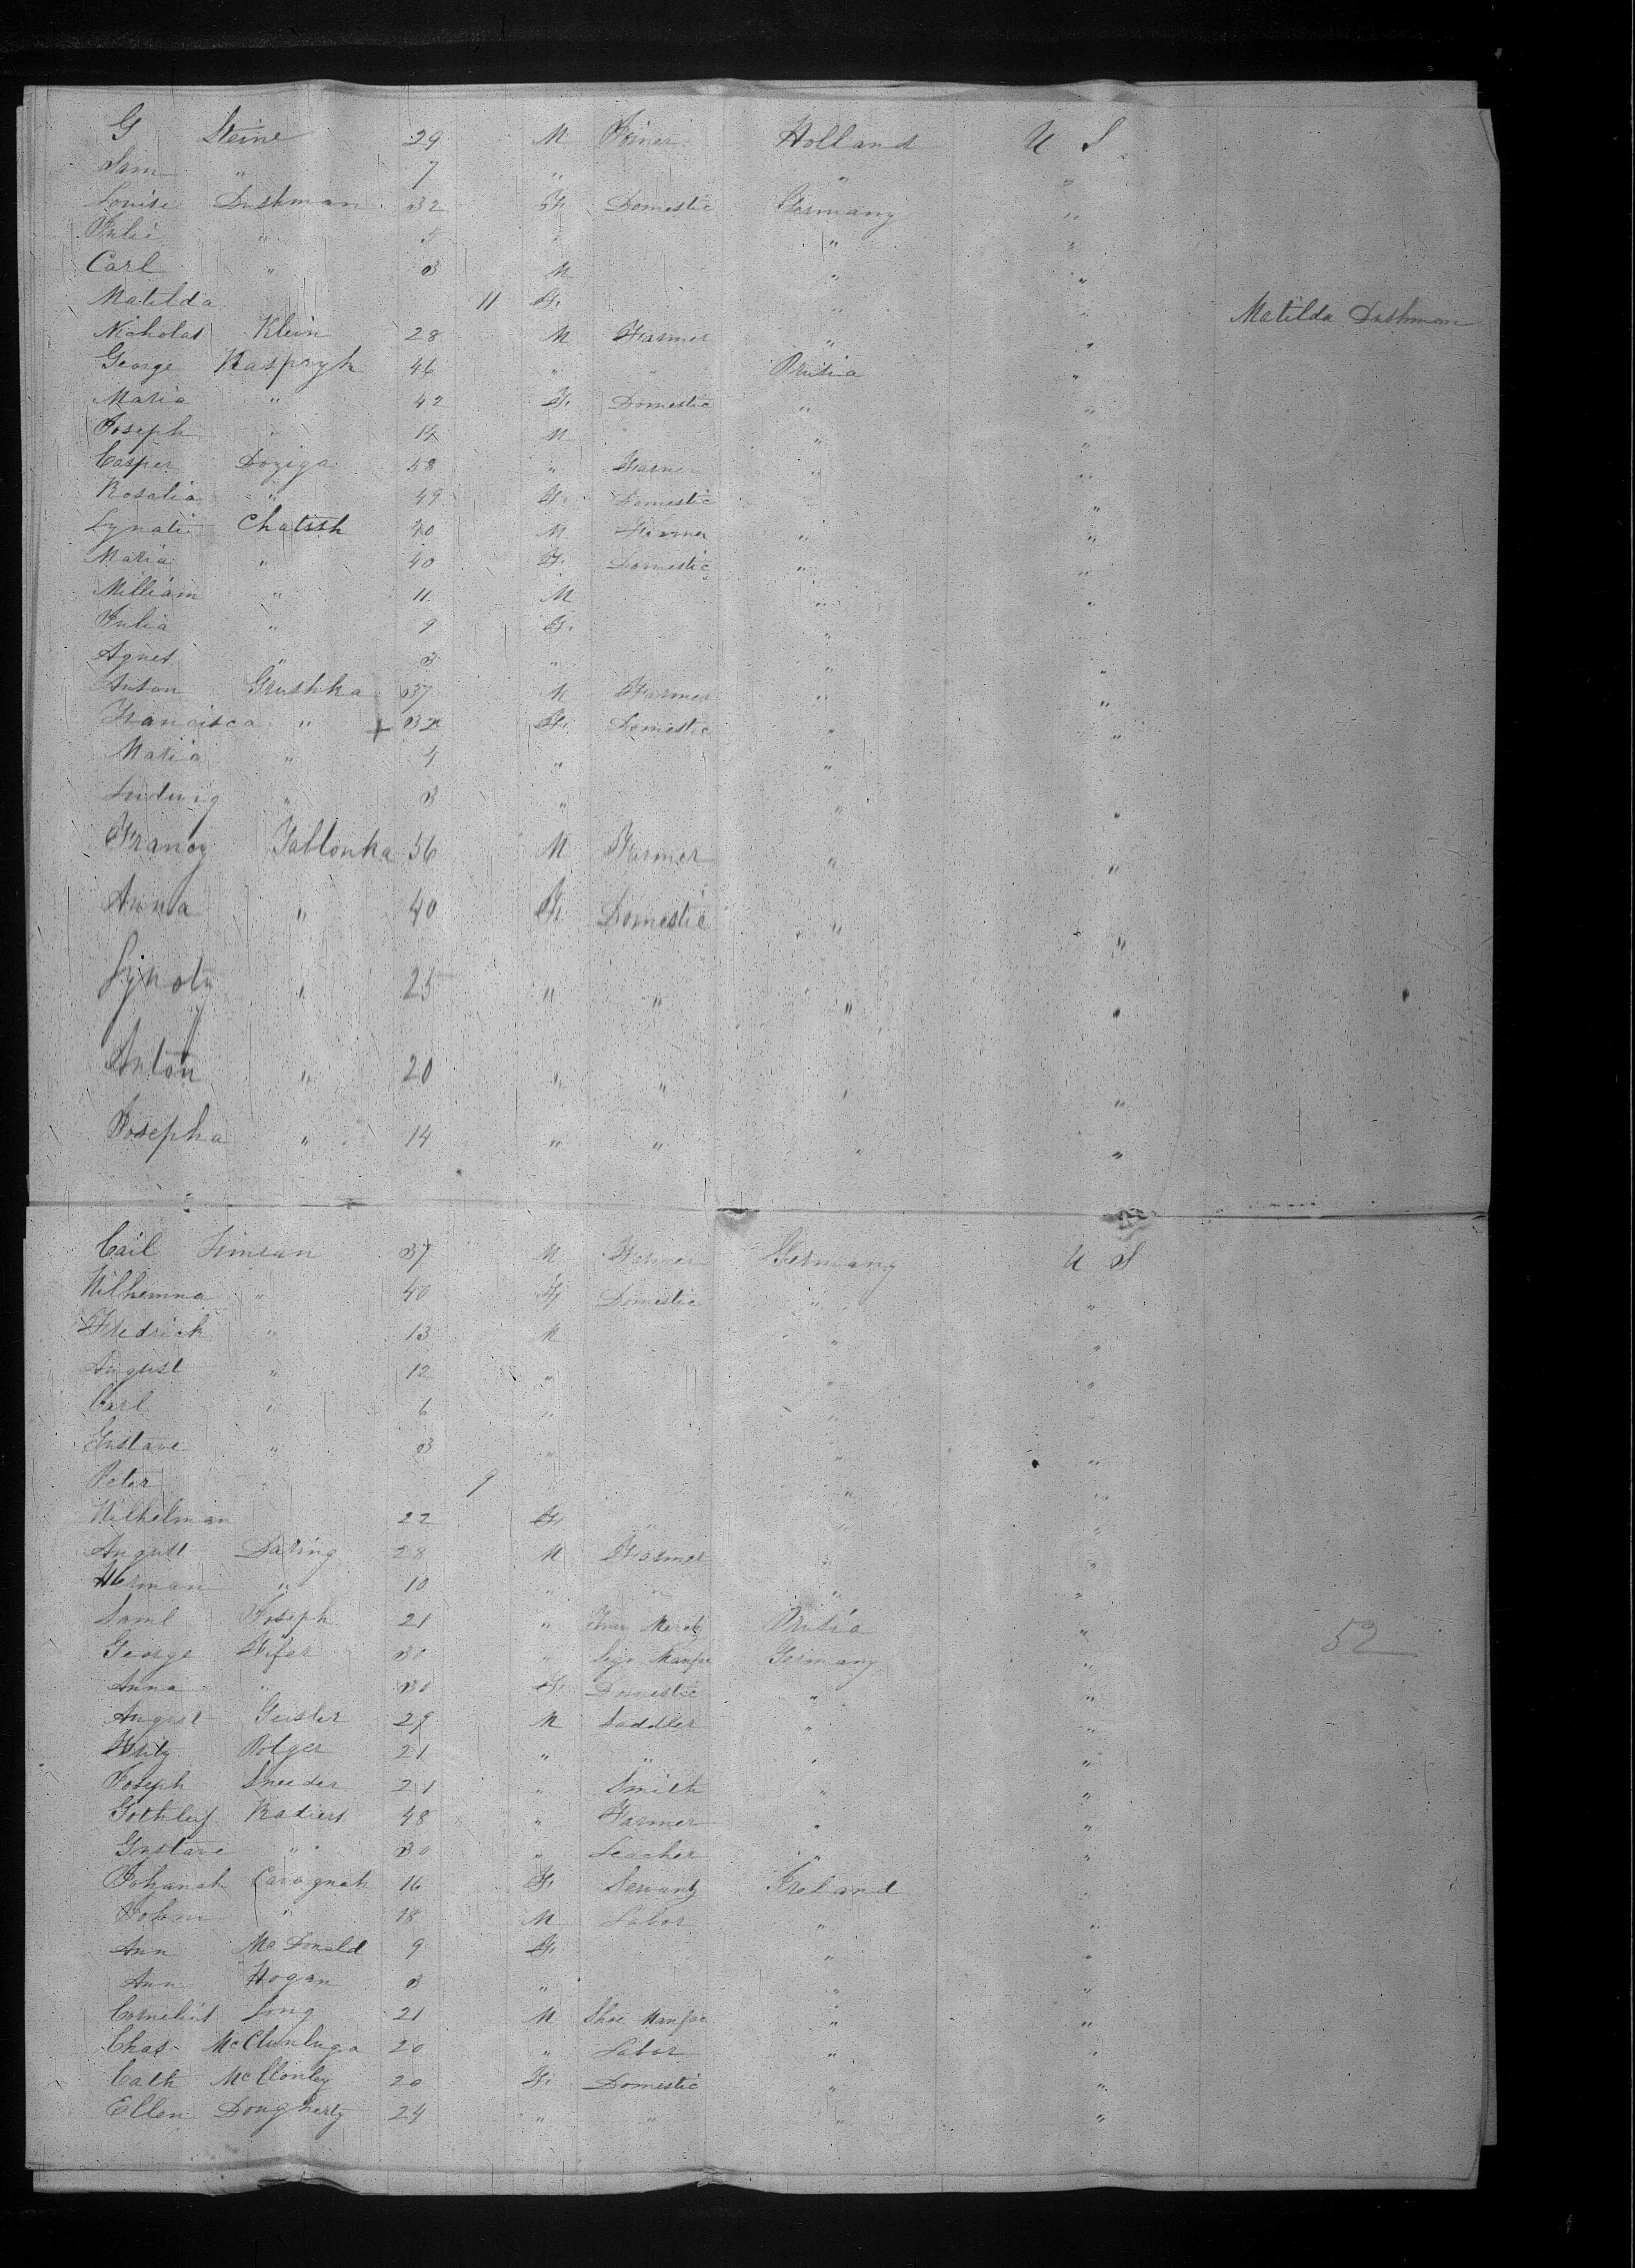 G Steine 29 M Joiner Holland U S
Sam " 7 " " "
Louise Dushman 32 F. Domestic Germany "
Julie " " "
Carl " 3 M " "
Matilda 11 F. " " Matilda Dushman
Nicholas Klein 28 M Farmer " "
George Kaspryk 46 " " Prusia "
Maria " 42 F. Domestic " "
Joseph " 14 M " "
Casper Doziga 58 " Farmer " "
Rosalia " 49 F. Domestic "
Lynati Chatish 40 M Farmer " "
Maria " 40 F. Domestic " "
William " 11 M " "
Julia " 9 F. " "
Agnes " 3 " " "
Anton Grushka 37 M Farmer " "
Francisca " + 32 F. Domestic " "
Maria " 4 " "
Ludwig " 3 " " "
Francy Jablonka 56 M Farmer " "
Anna " 40 F. Domestic " "
Lynoty " 25 " " " "
Anton " 20 " " " "
Josepha " 14 " " " "
Carl Simsan 37 M Farmer Germany U S
Wilhemna " 40 F. Domestic " "
Fredrick " 13 M " "
August " 12 " " "
Carl " 6 " " "
Gustave " 3 " " "
Peter " 9 " "
Wilhelman 22 F. " " "
August Daring 28 M Farmer " "
Herman " 10 " " " "
Saml Joseph 21 " Merch Prusia "
George Fifer 30 " Sigr Manfr Germany "
Anna " 30 F. Domestic " "
August Geisler 29 M Saddler " "
Fritz Polger 21 " " " "
Joseph Sneider 21 " Smith " "
Gothleif Radiert 48 " Farmer " "
Gustave " 30 " Teacher " "
Johanah Cavagnah 16 F. Servant Ireland "
John " 18 M Labor " "
Ann McDonald 9 F. " "
Ann Hogan 3 " " "
Cornelius Long 21 M Shoe Manfac " "
Chas McClunluga 20 " Labor " "
Cath McClonley 20 F. Domestic " "
Ellen Dougherty 24 " " " "
52